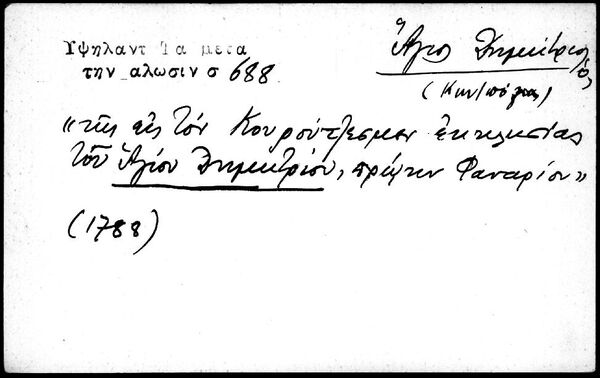 Υψηλαντ Τα μετα
την αλωσιν σ 688
Ἅγιος Δημήτριος
ὁ
(Κων/πόλεως)
«τῆς εἰς τὸν Κουρούτζεσμεν ἐκκλησίας
τοῦ Ἁγίου Δημητρίου, πρώην Φαναρίου»
(1788)